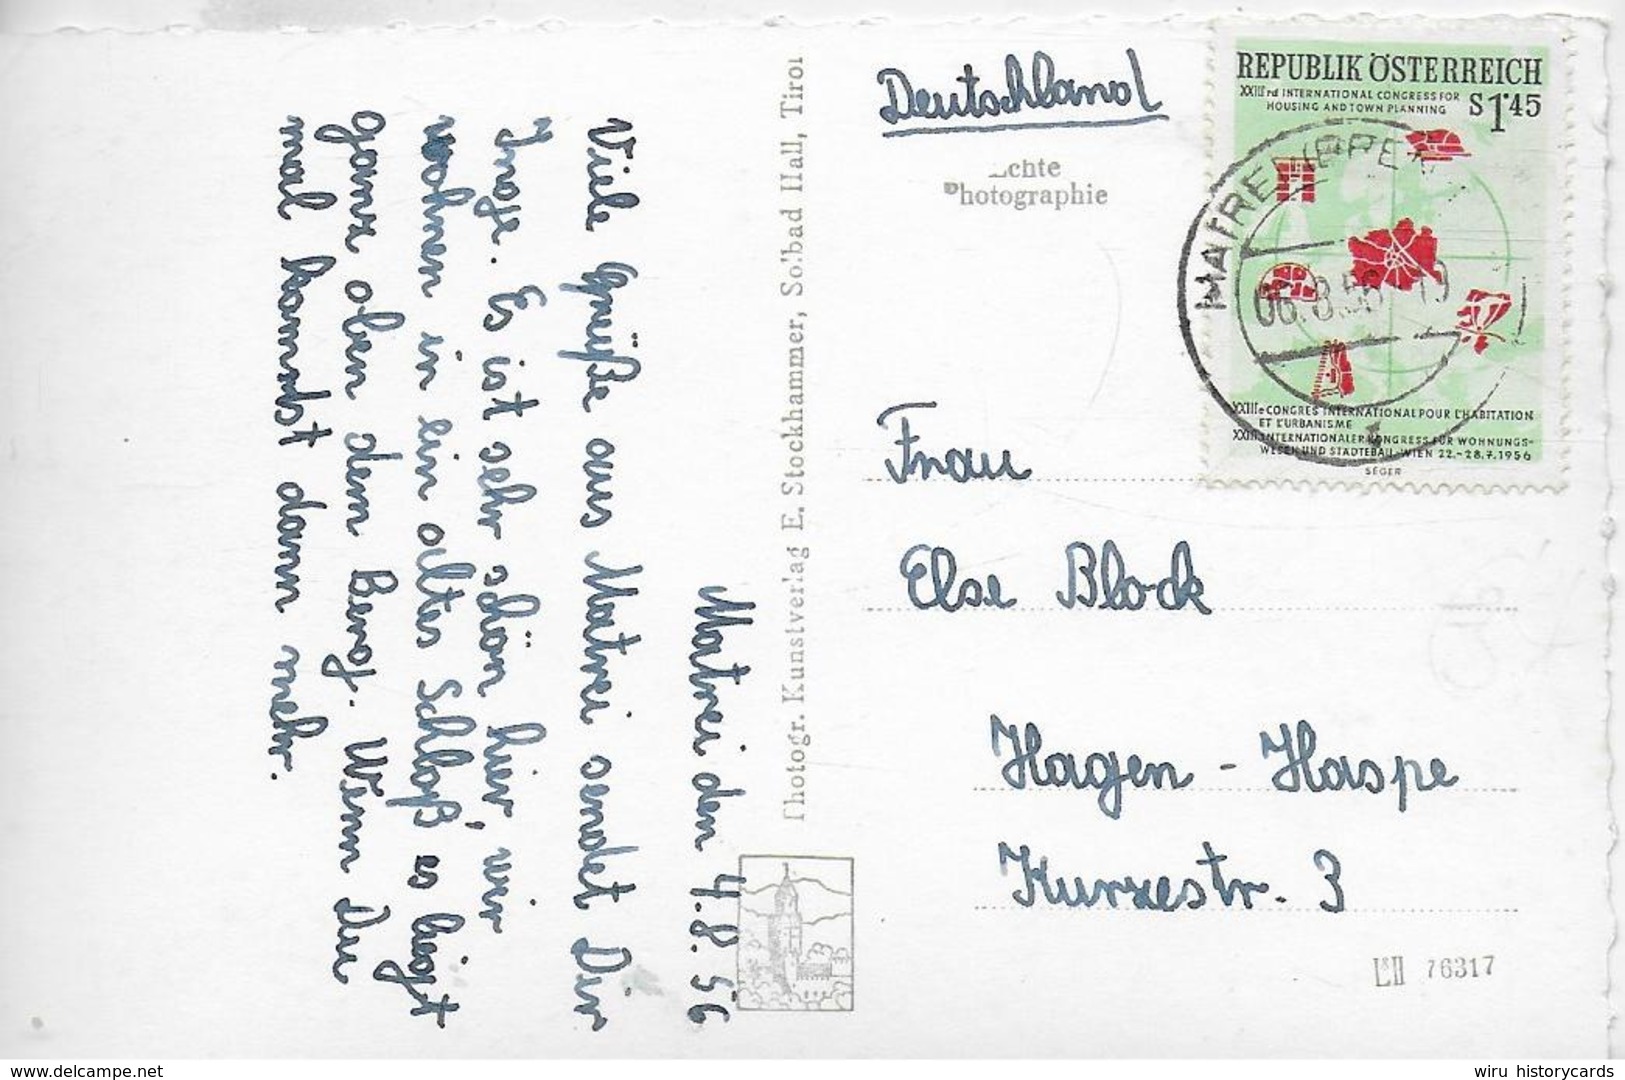 Matrei den 4.8.56
Viele Grüße aus Matrei sendet Dir
Inge. Es ist sehr schön hier, wir
wohnen in ein altes Schloß es liegt
ganz oben dem Berg. Wenn Du
mal kommst dann mehr.
Photogr. Kunstverlag E. Stockhammer, Solbad Hall, Tirol
Deutschland
Echte
Photographie
REPUBLIK ÖSTERREICH
XXIIIrd INTERNATIONAL CONGRESS FOR
HOUSING AND TOWN PLANNING S 1·45
06.8.56 - 19
XXIIIe CONGRES INTERNATIONAL POUR L'HABITATION
ET L'URBANISME
XXIII INTERNATIONALER KONGRESS FÜR WOHNUNGS-
WESEN UND STÄDTEBAU-WIEN 22.-28.7.1956
SEGER
Frau
Else Block
Hagen - Haspe
Kurzestr. 3
76317
www.delcampe.net
wiru historycards